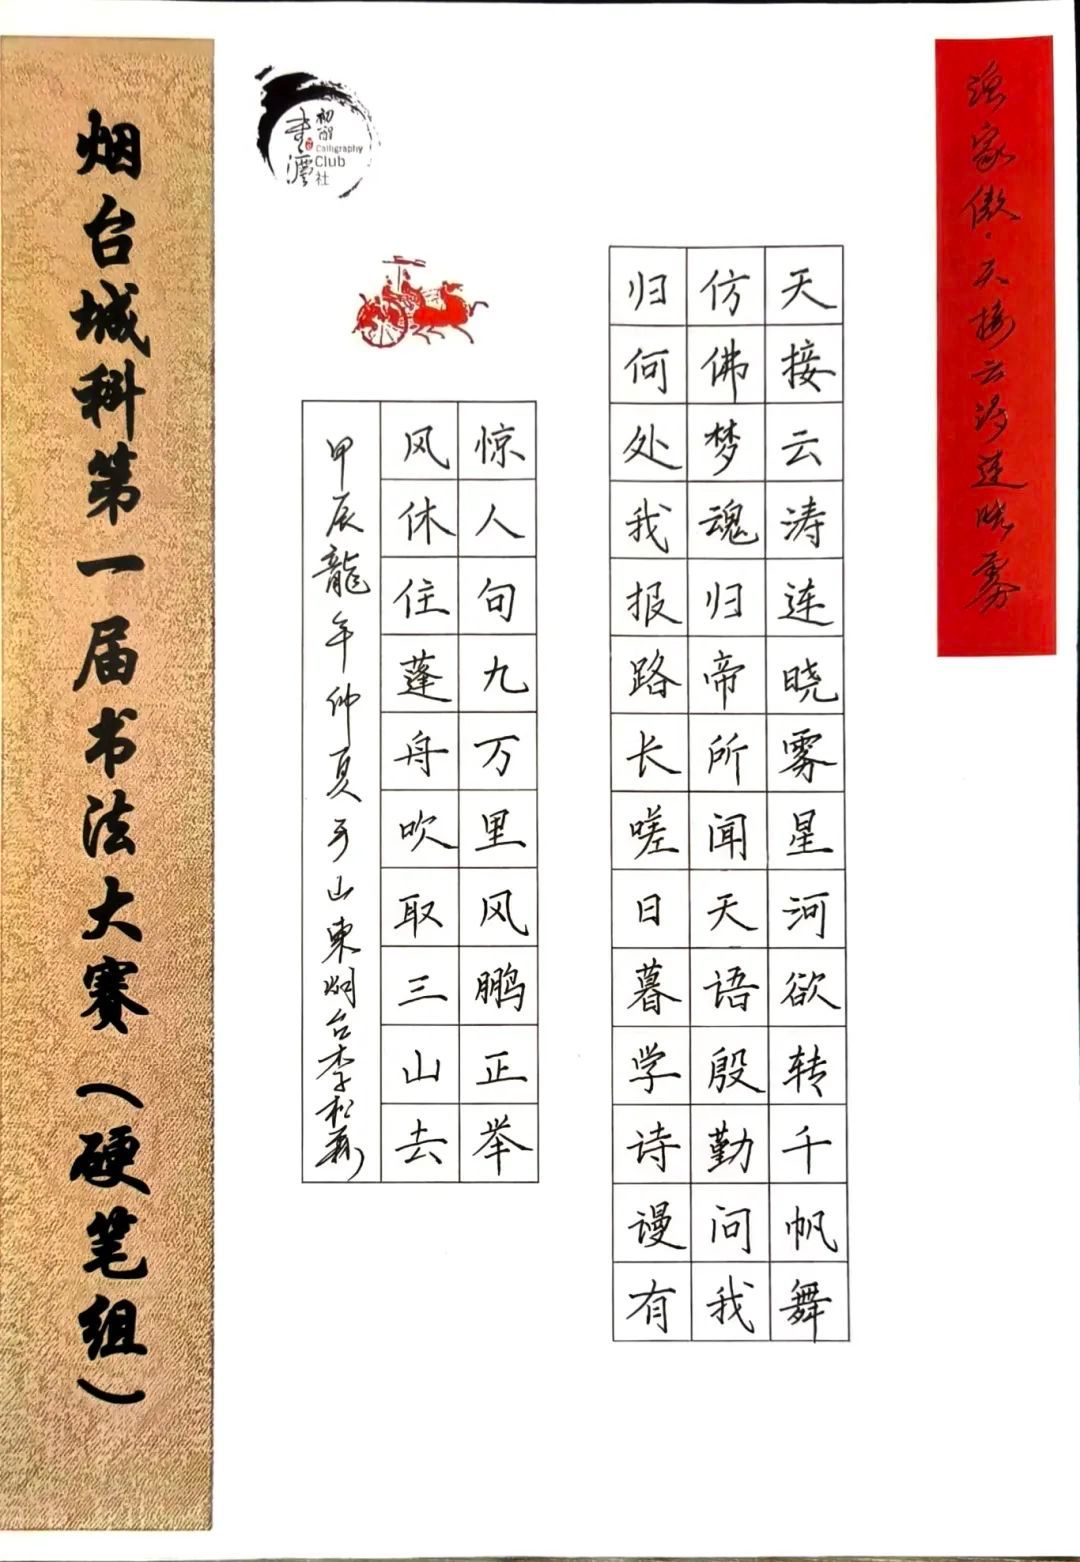 渔家傲·天接云涛连晓雾
天接云涛连晓雾星河欲转千帆舞
仿佛梦魂归帝所闻天语殷勤问我
归何处我报路长嗟日暮学诗谩有
惊人句九万里风鹏正举
风休住蓬舟吹取三山去
甲辰龍年仲夏于山東烟台李松
初
Calligraphy
Club
社
烟台城科第一届书法大赛（硬笔组）